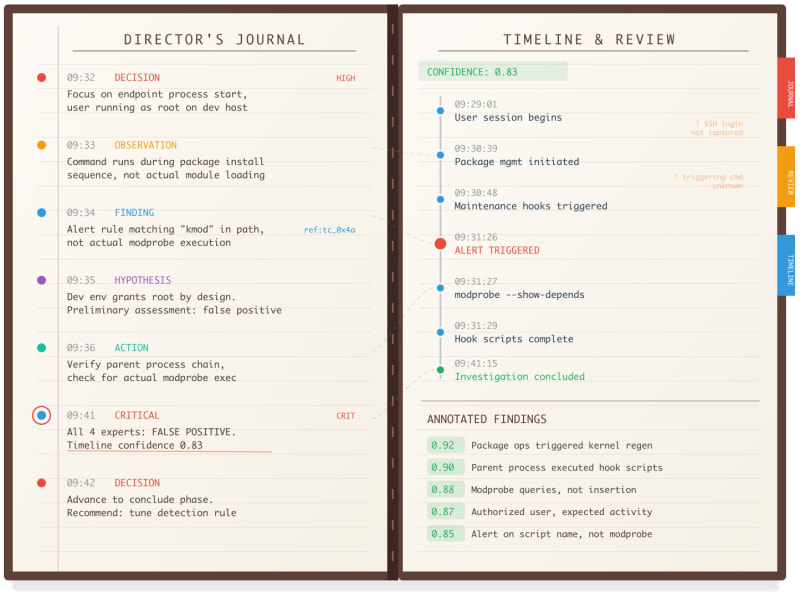 DIRECTOR'S JOURNAL
09:32 DECISION HIGH
Focus on endpoint process start,
user running as root on dev host
09:33 OBSERVATION
Command runs during package install
sequence, not actual module loading
09:34 FINDING
Alert rule matching "kmod" in path, ref:tc_0x4a
not actual modprobe execution
09:35 HYPOTHESIS
Dev env grants root by design.
Preliminary assessment: false positive
09:36 ACTION
Verify parent process chain,
check for actual modprobe exec
09:41 CRITICAL CRIT
All 4 experts: FALSE POSITIVE.
Timeline confidence 0.83
09:42 DECISION
Advance to conclude phase.
Recommend: tune detection rule
TIMELINE & REVIEW
CONFIDENCE: 0.83
09:29:01
User session begins
? SSH login
not captured
09:30:39
Package mgmt initiated
? triggering cmd
unknown
09:30:48
Maintenance hooks triggered
09:31:26
ALERT TRIGGERED
09:31:27
modprobe --show-depends
09:31:29
Hook scripts complete
09:41:15
Investigation concluded
ANNOTATED FINDINGS
0.92 Package ops triggered kernel regen
0.90 Parent process executed hook scripts
0.88 Modprobe queries, not insertion
0.87 Authorized user, expected activity
0.85 Alert on script name, not modprobe
JOURNAL
REVIEW
TIMELINE